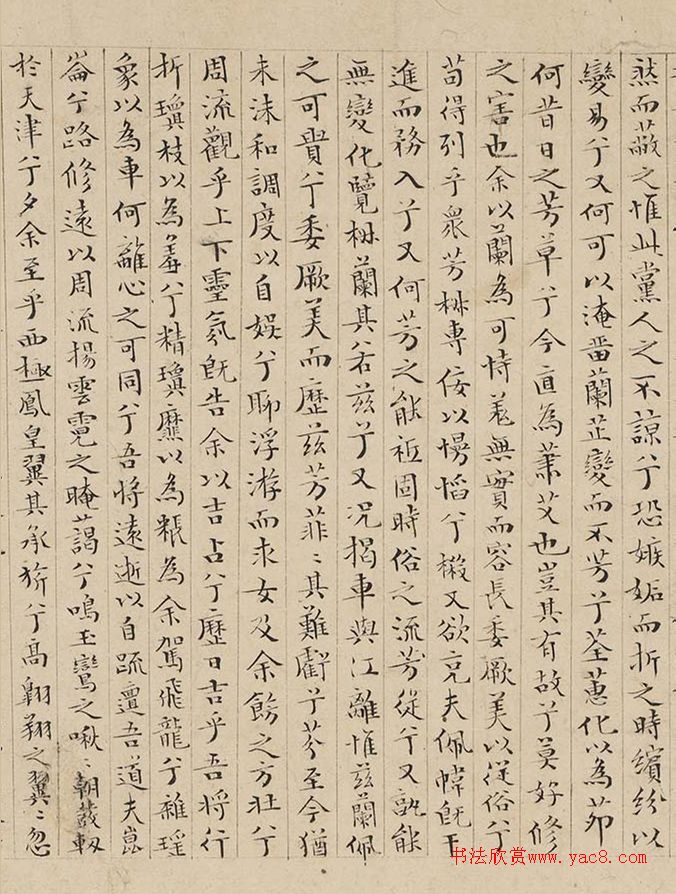 然而蔽之惟此黨人之不諒兮恐嫉妬而折之時繽紛以
變易兮又何可以淹留蘭芷變而不芳兮荃蕙化以為茆
何昔日之芳草兮今直為蕭艾也豈其有故兮莫好修
之害也余以蘭為可恃羌無實而容長委厥美以從俗兮
苟得列乎衆芳椒專佞以慢慆兮樧又欲充夫佩幃既干
進而務入兮又何芳之能祗固時俗之流芳從兮又孰能
無變化覽椒蘭其若茲兮又況揭車與江離惟茲蘭佩
之可貴兮委厥美而歷茲芳菲〻其難虧兮芬至今猶
未沬和調度以自娛兮聊浮游而求女及余飾之方壯兮
周流觀乎上下靈氛既告余以吉占兮歷日吉乎吾將行
折瓊枝以為羞兮精瓊爢以為粻為余駕飛龍兮雜瑤
象以為車何離心之可同兮吾將遠逝以自疏邅吾道夫崑
崙兮路修遠以周流揚雲霓之晻藹兮鳴玉鸞之啾〻朝發軔
於天津兮夕余至乎西極鳳皇翼其承旂兮高翱翔之翼〻忽
书法欣赏www.yac8.com